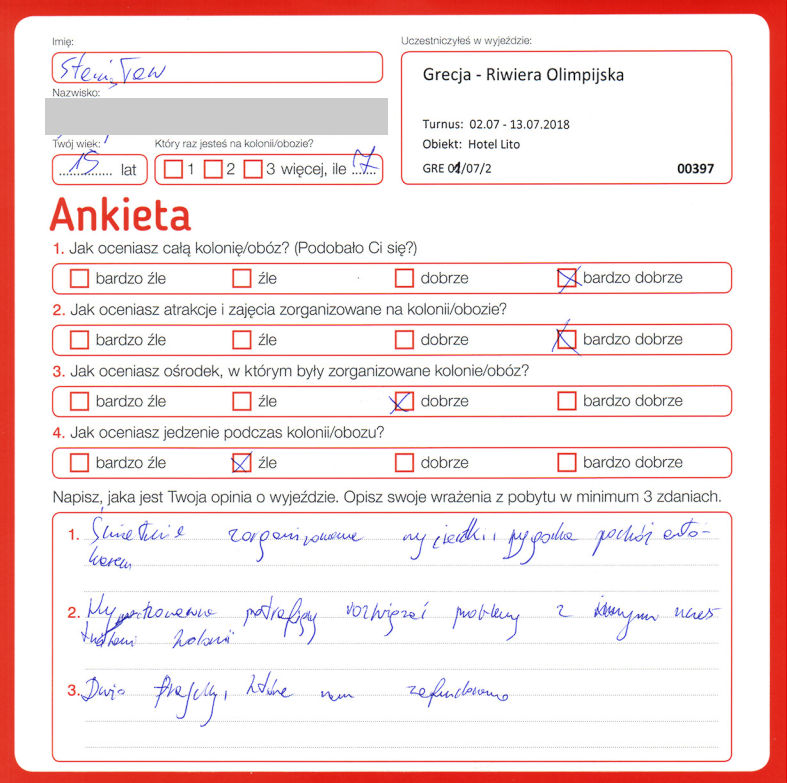 Imię:
Stanisław
Nazwisko:
Twój wiek:
15 lat
Który raz jesteś na kolonii/obozie?
1 2 3 więcej, ile 7
Uczestniczyłeś w wyjeździe:
Grecja - Riwiera Olimpijska
Turnus: 02.07 - 13.07.2018
Obiekt: Hotel Lito
GRE 01/07/2 00397
Ankieta
1. Jak oceniasz całą kolonię/obóz? (Podobało Ci się?)
bardzo źle źle dobrze bardzo dobrze
2. Jak oceniasz atrakcje i zajęcia zorganizowane na kolonii/obozie?
bardzo źle źle dobrze bardzo dobrze
3. Jak oceniasz ośrodek, w którym były zorganizowane kolonie/obóz?
bardzo źle źle dobrze bardzo dobrze
4. Jak oceniasz jedzenie podczas kolonii/obozu?
bardzo źle źle dobrze bardzo dobrze
Napisz, jaka jest Twoja opinia o wyjeździe. Opisz swoje wrażenia z pobytu w minimum 3 zdaniach.
1. Świetnie zorganizowane wycieczki, wygodna podróż auto-
karem
2. Wychowawcy potrafią rozwiązać problemy z innymi uczes
tnikami kolonii
3. Dużo atrakcji, które nam zafundowano